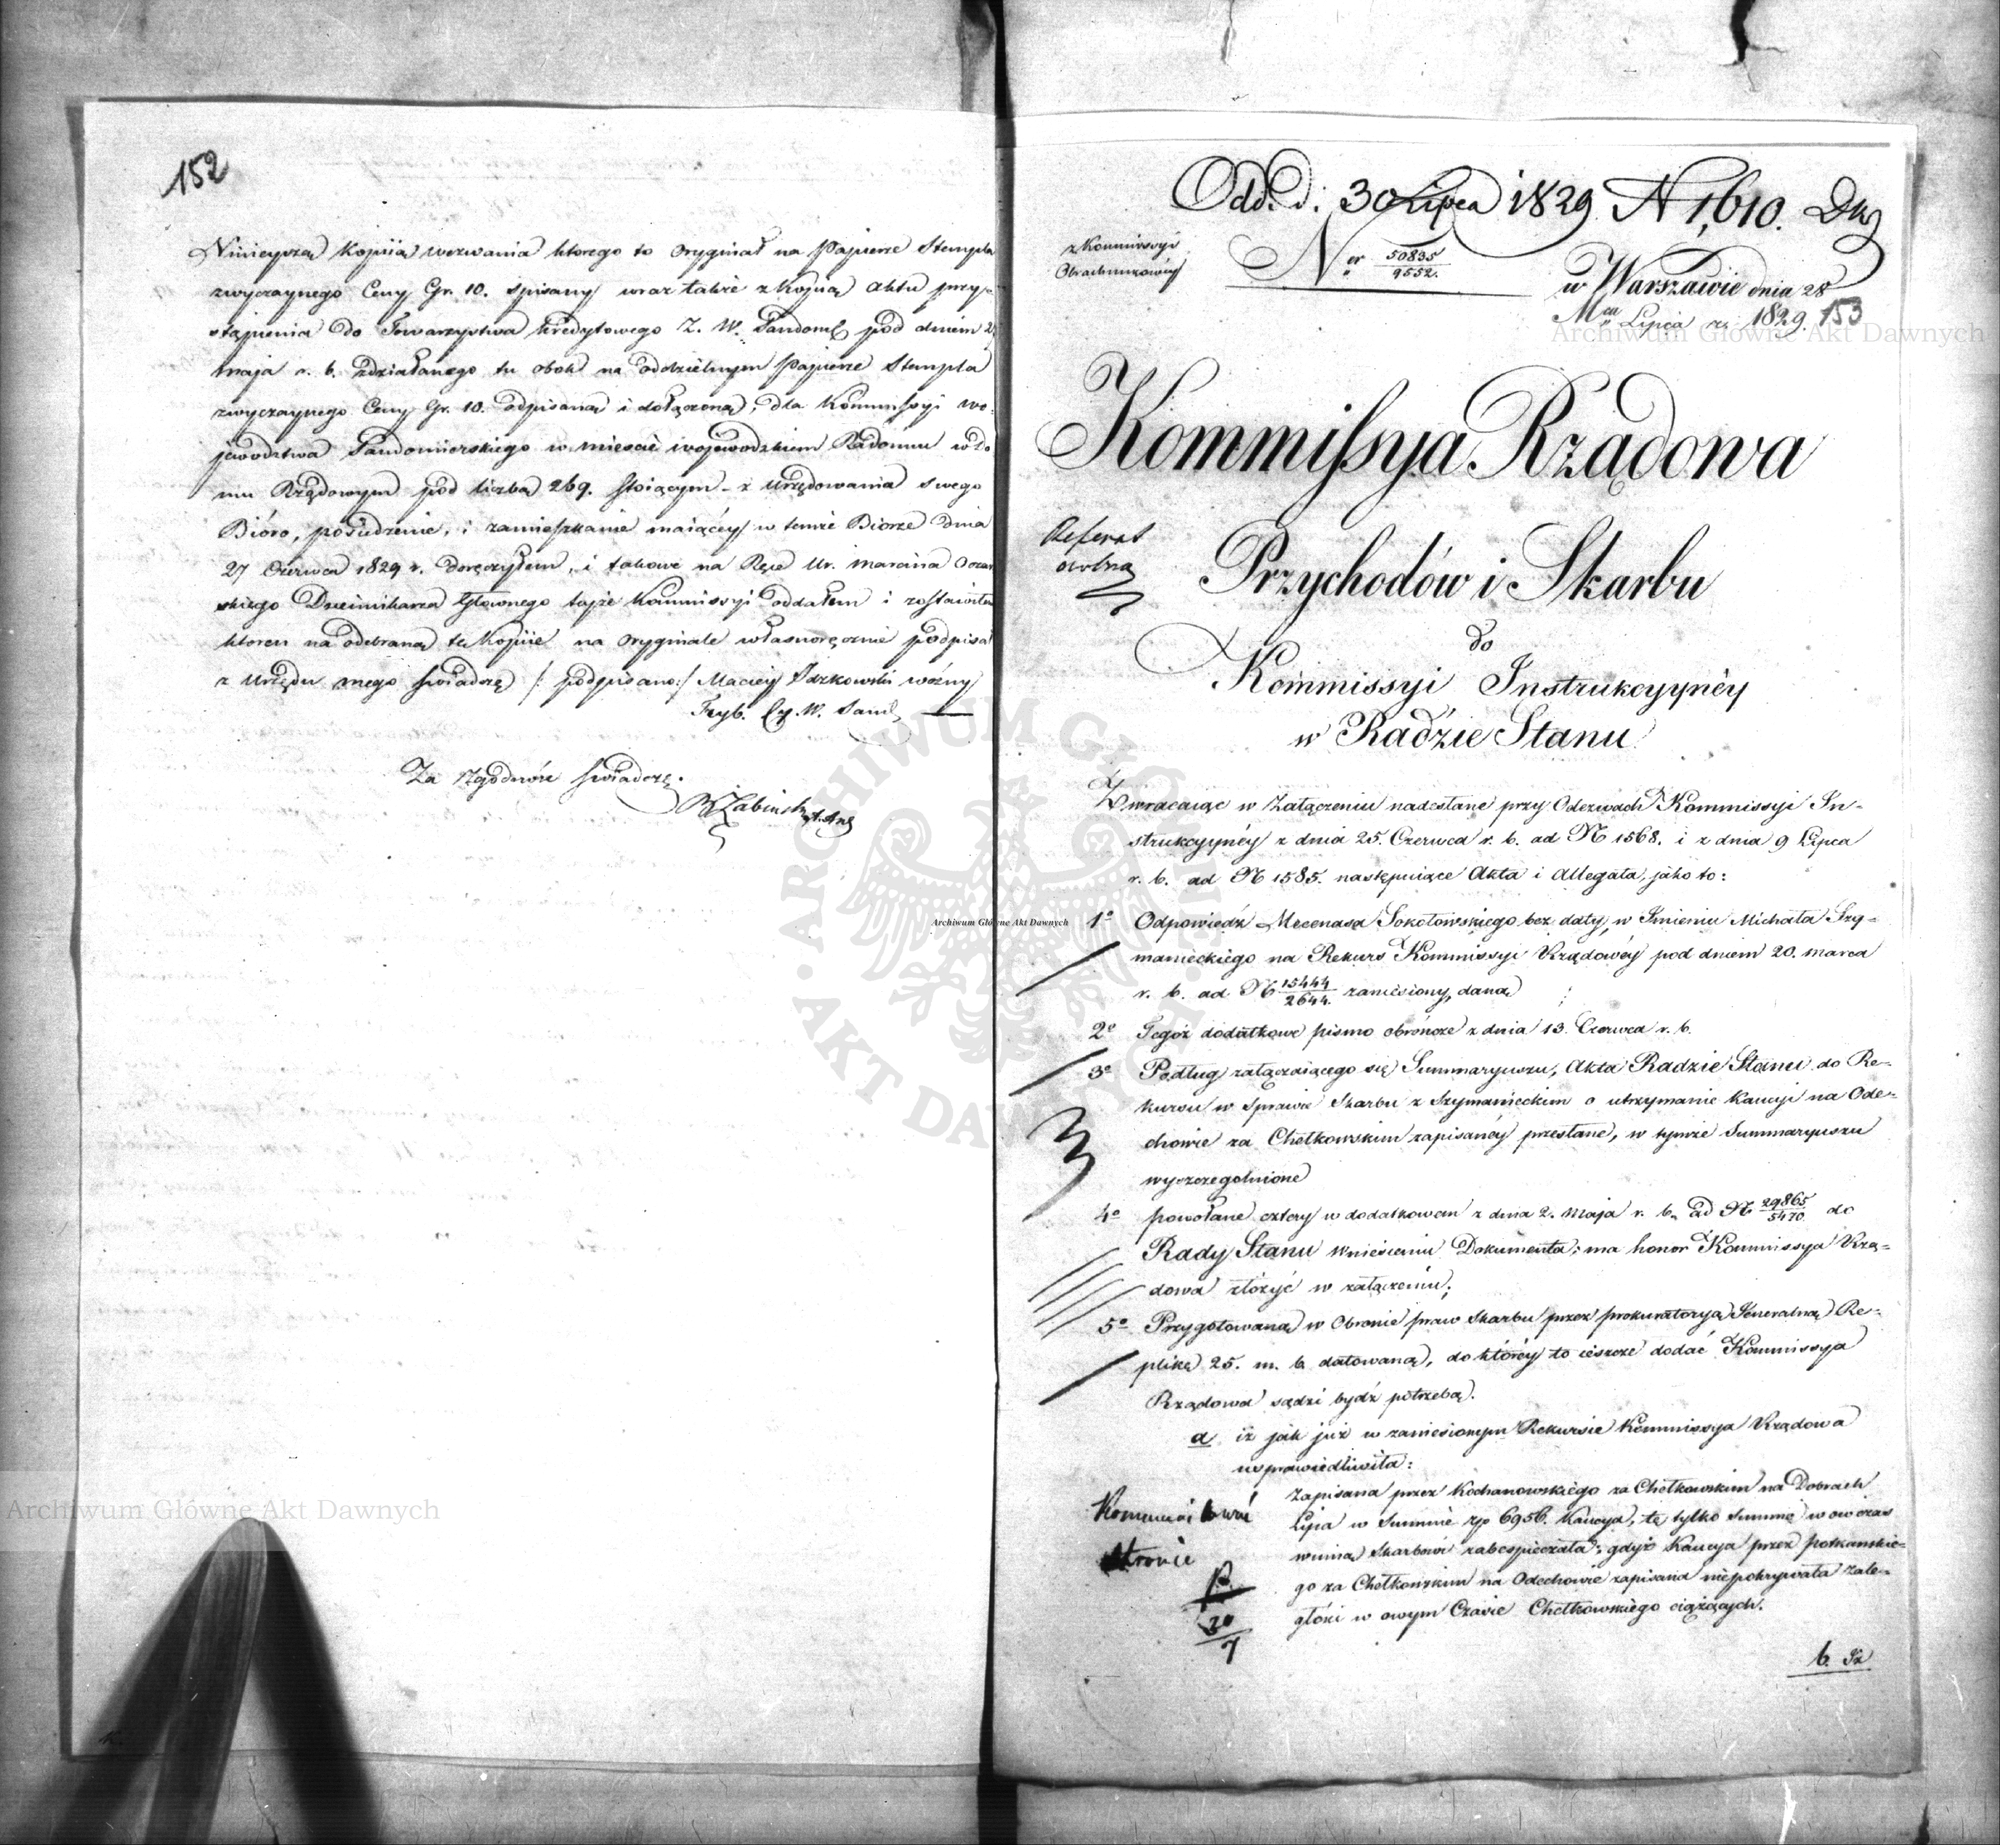 152
Ninieyszą Kopiią wezwania ktorego to Oryginał na Papierze Stempla
zwyczaynego Ceny Gr. 10. spisany wraz także z Kopią Aktu przy-
stąpienia do Towarzystwa Kredytowego Z. W. Sandom. pod dniem 2
maja r. b. zdziałanego tu obok na oddzielnym Papierze Stempla
zwyczaynego Ceny Gr. 10. odpisaną i dołączoną, dla Kommissyi Wo-
jewodztwa Sandomierskiego w mieście wojewodzkiem Radomiu w do
mu Rządowym pod liczbą 269. stoiącym z urzędowania swego
Bióro, posiedzenie, i zamieszkanie maiącéy w temże Biorze dnia
27 Czerwca 1829 r. doręczyłem, i takowe na Ręce Ur. Marcina
skiego Dziennikarza Głównego teyże Kommissyi oddałem i zostawiłem
ktoren na odebraną tę Kopiie na Oryginale własnoręcznie podpisał
z Urzędu mego świadczę /: podpisano:/ Maciey Idzkowski woźny
Tryb. Cy. W. Sand.
Za zgodność świadczę.
Odd. d. 30 Lipca 1829 N 1,610.
z Kommissyi
Obrachunkowéy
Ner 50835/9552.
w Warszawie dnia 28
Mca Lipca r. 1829. 153
Kommissya Rządowa
Referat
Przychodów i Skarbu
do
Kommissyi Instrukcyynéy
w Radzie Stanu
Zwracaiąc w Załączeniu nadesłane przy Odezwach Kommissyi In-
strukcyynéy z dnia 25. Czerwca r. b. ad N 1568. i z dnia 9 Lipca
r. b. ad N 1585. następuiące Akta i Allegata, jako to:
1o Odpowiedź Mecenasa Sokołowskiego bez daty, w Imieniu Michała Szy-
manieckiego na Rekurs Kommissyi Rządowéy pod dniem 20. marca
r. b. ad N 15444/2644. zaniesiony, daną
2o Tegoż dodatkowe pismo obrończe z dnia 13. Czerwca r. b.
3o Podług załączaiącego się Summaryuszu, Akta Radzie Stanu do Re-
kursu w Sprawie Skarbu z Szymanieckim o utrzymanie Kaucyi na Ode-
chowie za Chełkowskim zapisanéy przesłane, w tymże Summaryuszu
wyszczegolnione
4o powołane cztery w dodatkowem z dnia 2. Maja r. b. ad N 29865/5470 do
Rady Stanu wniesieniu Dokumenta; ma honor Kommissya Rzą-
dowa złożyć w załączeniu;
5o Przygotowaną w Obronie praw Skarbu przez prokuratoryą Jeneralną Re-
plikę 25. m. b. datowaną, do któréy to ieszcze dodać Kommissya
Rządowa sądzi bydź potrzebą.
a iż jak już w zaniesionym Rekursie Kommissya Rządowa
usprawiedliwiła:
Zapisana przez Kochanowskiego za Chełkowskim na Dobrach
Lipia w Summie zp 6956. Kaucya, tę tylko Summę wowczas
winną Skarbowi zabespieczała; gdyż Kaucya przez Potkanskie-
go za Chełkowskim na Odechowie zapisana niepokrywała zale-
głości w owym Czasie Chełkowskiego ciążących.
stronie
30/7
b. Iż
Archiwum Główne Akt Dawnych
Archiwum Główne Akt Dawnych
Archiwum Główne Akt Dawnych
ARCHIWUM GŁÓWNE AKT DAWNYCH